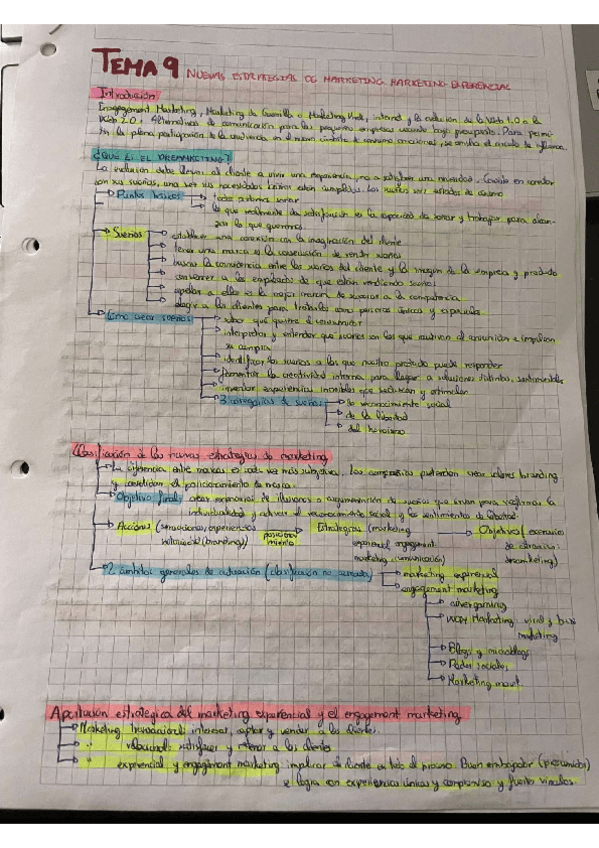 TEMA 9 NUEVAS ESTRATEGIAS DE MARKETING. MARKETING EXPERIENCIAL
Introducción
Engagement Marketing, Marketing de Guerrilla o Marketing Viral, internet y la evolución de la Web 1.0 a la
Web 2.0. Alternativas de comunicación para las pequeñas empresas usando bajo presupuesto. Para
la plena participación de la audiencia en el nuevo ámbito de consumo emocional, se amplía el círculo de influencia.
¿QUÉ ES EL DREAMKETING?
La evolución debe llevar al cliente a vivir una experiencia, no a satisfacer una necesidad.
sus sueños, una vez sus necesidades básicas están cumplidas. Los sueños son estados de ánimo
Puntos básicos
Todos podemos soñar
lo que realmente da satisfacción es la capacidad de soñar y trabajar para alcan-
zar lo que queremos.
Sueños
establecer una conexión con la imaginación del cliente
tener una marca es la consecución de vender sueños
buscar la convivencia entre los sueños del cliente y la imagen de la empresa y producto
convencer a los empleados de que están vendiendo sueños
apelar a ellos es la mejor manera de superar a la competencia
elegir a los clientes para tratarlos como personas únicas y especiales
Cómo crear sueños
saber qué quiere el consumidor
interpretar y entender que sueños son los que motivan al consumidor e impulsan
su compra
identificar los sueños a los que nuestro producto puede responder
fomentar la creatividad interna para llegar a soluciones distintas, sentimentales
inventar experiencias increíbles que seduzcan y estimulen
3 categorías de sueños
de reconocimiento social
de la libertad
del heroísmo
Clasificación de las nuevas estrategias de marketing
La diferencia entre marcas es cada vez más subjetiva. Las compañías pretenden crear valores branding
y consolidan el posicionamiento de marca.
Objetivo final: crear escenarios de ilusiones o argumentación de sueños que sirvan para reafirmar la
individualidad y activar el reconocimiento social y los sentimientos de
Acciones (sensaciones, experiencias
notoriedad (branding))
posiciona
miento
Estrategias (marketing
experiencial, engagement
marketing, comunicación)
Objetivo (escenarios
de
dreamketing)
2 ámbitos generales de actuación (clasificación no cerrada)
marketing experiencial
engagement marketing
advergaming
WOM Marketing: viral y buzz
marketing
Blogs y microblogs
Redes sociales
Marketing móvil
Aportación estratégica del marketing experiencial y el engagement marketing
Marketing transaccional: interesar, captar y vender a los clientes.
" relacional: satisfacer y retener a los clientes
" experiencial y engagement marketing: implicar al cliente en todo el proceso. Buen embajador (prosumidor)
se logra con experiencias únicas y compromiso y fuertes vínculos.